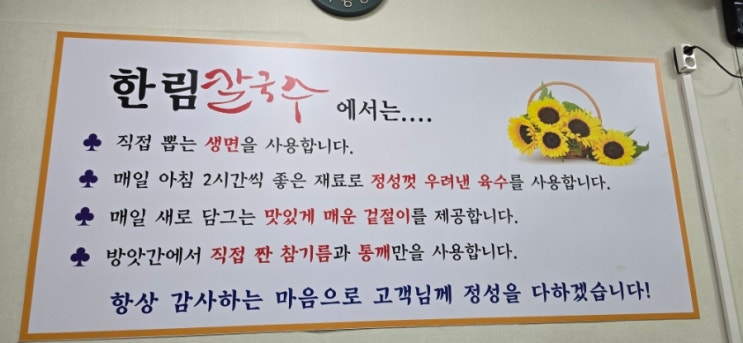 한림칼국수 에서는....
직접 뽑는 생면을 사용합니다.
매일 아침 2시간씩 좋은 재료로 정성껏 우려낸 육수를 사용합니다.
매일 새로 담그는 맛있게 매운 겉절이를 제공합니다.
방앗간에서 직접 짠 참기름과 통깨만을 사용합니다.
항상 감사하는 마음으로 고객님께 정성을 다하겠습니다!